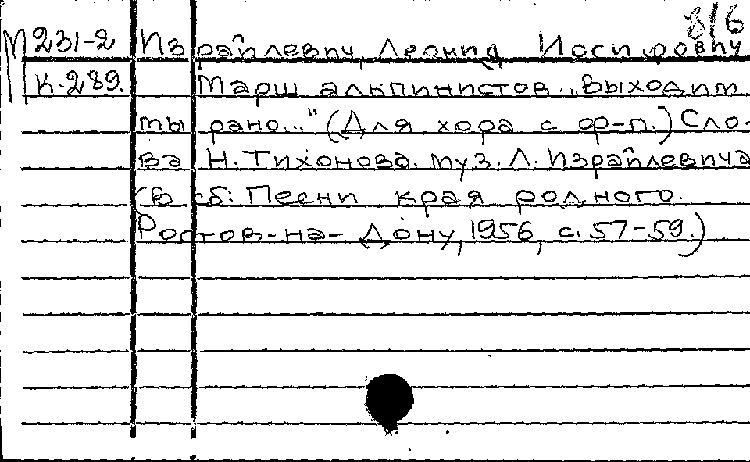 816
М231-2 Израилевич, Леонид Иосифович
К-289. Марш альпинистов „Выходим
мы рано..." (Для хора с ф-п.) Сло-
ва Н. Тихонова. муз. Л. Израилевича
(В сб: Песни края родного.
Ростов-на-Дону, 1956, с. 57-59.)